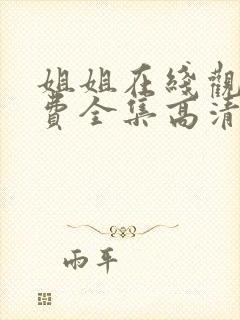 姐姐在綫觀
費全集高清
雨平